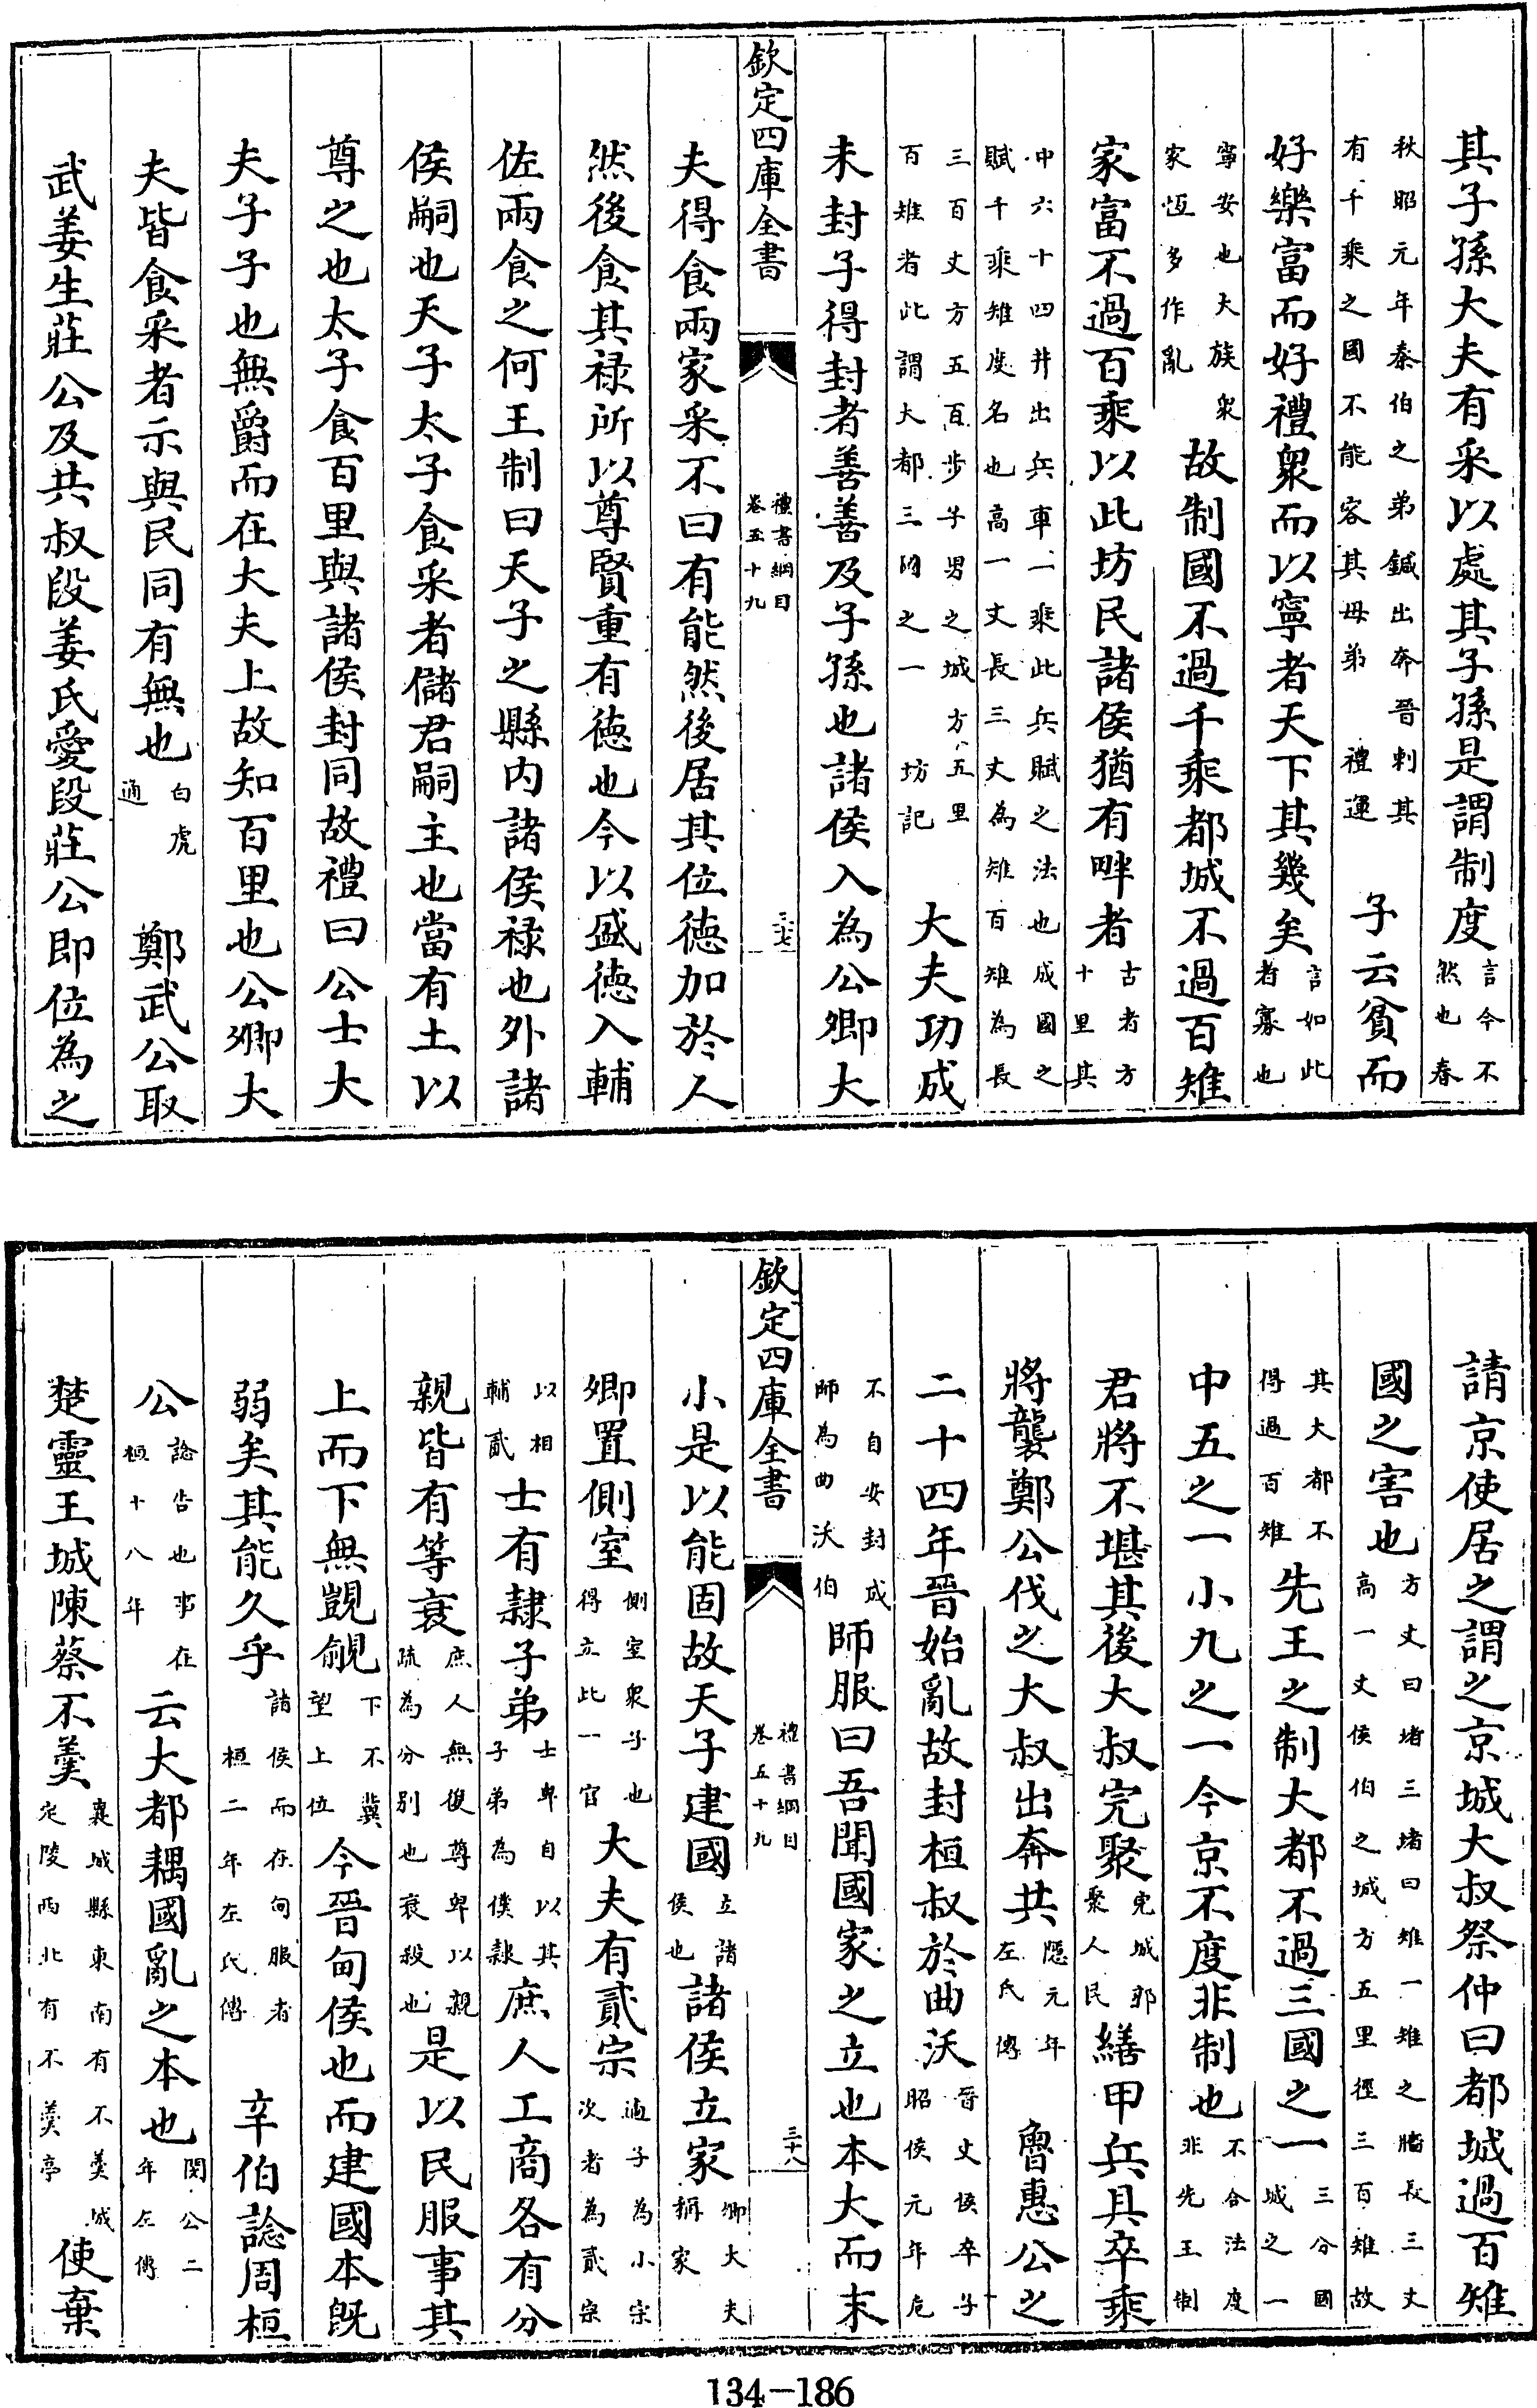 其子孫大夫有采以處其子孫是謂制度言今不然也春
秋昭元年秦伯之弟鍼出奔晉刺其有千乘之國不能容其母弟　禮運　子云貧而
好樂富而好禮衆而以寧者天下其幾矣言如此者寡也
寧安也大族衆家恆多作亂　故制國不過千乘都城不過百雉
家富不過百乘以此坊民諸侯猶有畔者古者方十里其
中六十四井出兵車一乘此兵賦之法也成國之賦千乘雉度名也高一丈長三丈為雉百雉為長
三百丈方五百步子男之城方五里百雉者此謂大都三國之一　坊記　大夫功成
未封子得封者善善及子孫也諸侯入為公卿大
欽定四庫全書　禮書綱目　卷五十九　三十七
夫得食兩家采不曰有能然後居其位德加於人
然後食其祿所以尊賢重有德也今以盛德入輔
佐兩食之何王制曰天子之縣內諸侯祿也外諸
侯嗣也天子太子食采者儲君嗣主也當有土以
尊之也太子食百里與諸侯封同故禮曰公士大
夫子子也無爵而在大夫上故知百里也公卿大
夫皆食采者示與民同有無也白虎通　鄭武公取
武姜生莊公及共叔段姜氏愛段莊公即位為之
請京使居之謂之京城大叔祭仲曰都城過百雉
國之害也方丈曰堵三堵曰雉一雉之牆長三丈高一丈侯伯之城方五里徑三百雉故
其大都不得過百雉　先王之制大都不過三國之一三分國城之一
中五之一小九之一今京不度非制也不合法度非先王制
君將不堪其後大叔完聚完城郭聚人民　繕甲兵具卒乘
將襲鄭公伐之大叔出奔共隱元年左氏傳　魯惠公之
二十四年晉始亂故封桓叔於曲沃晉文侯卒子昭侯元年危
不自安封成師為曲沃伯　師服曰吾聞國家之立也本大而末
欽定四庫全書　禮書綱目　卷五十九　三十八
小是以能固故天子建國立諸侯也　諸侯立家卿大夫稱家
卿置側室側室衆子也得立此一官　大夫有貳宗適子為小宗次者為貳宗
以相輔貳　士有隸子弟士卑自以其子弟為僕隸　庶人工商各有分
親皆有等衰庶人無復尊卑以親疏為分別也衰殺也　是以民服事其
上而下無覬覦下不冀望上位　今晉甸侯也而建國本既
弱矣其能久乎諸侯而在甸服者桓二年左氏傳　辛伯諗周桓
公諗告也事在桓十八年　云大都耦國亂之本也閔公二年左傳
楚靈王城陳蔡不羹襄城縣東南有不羹城定陵西北有不羹亭　使棄
134-186